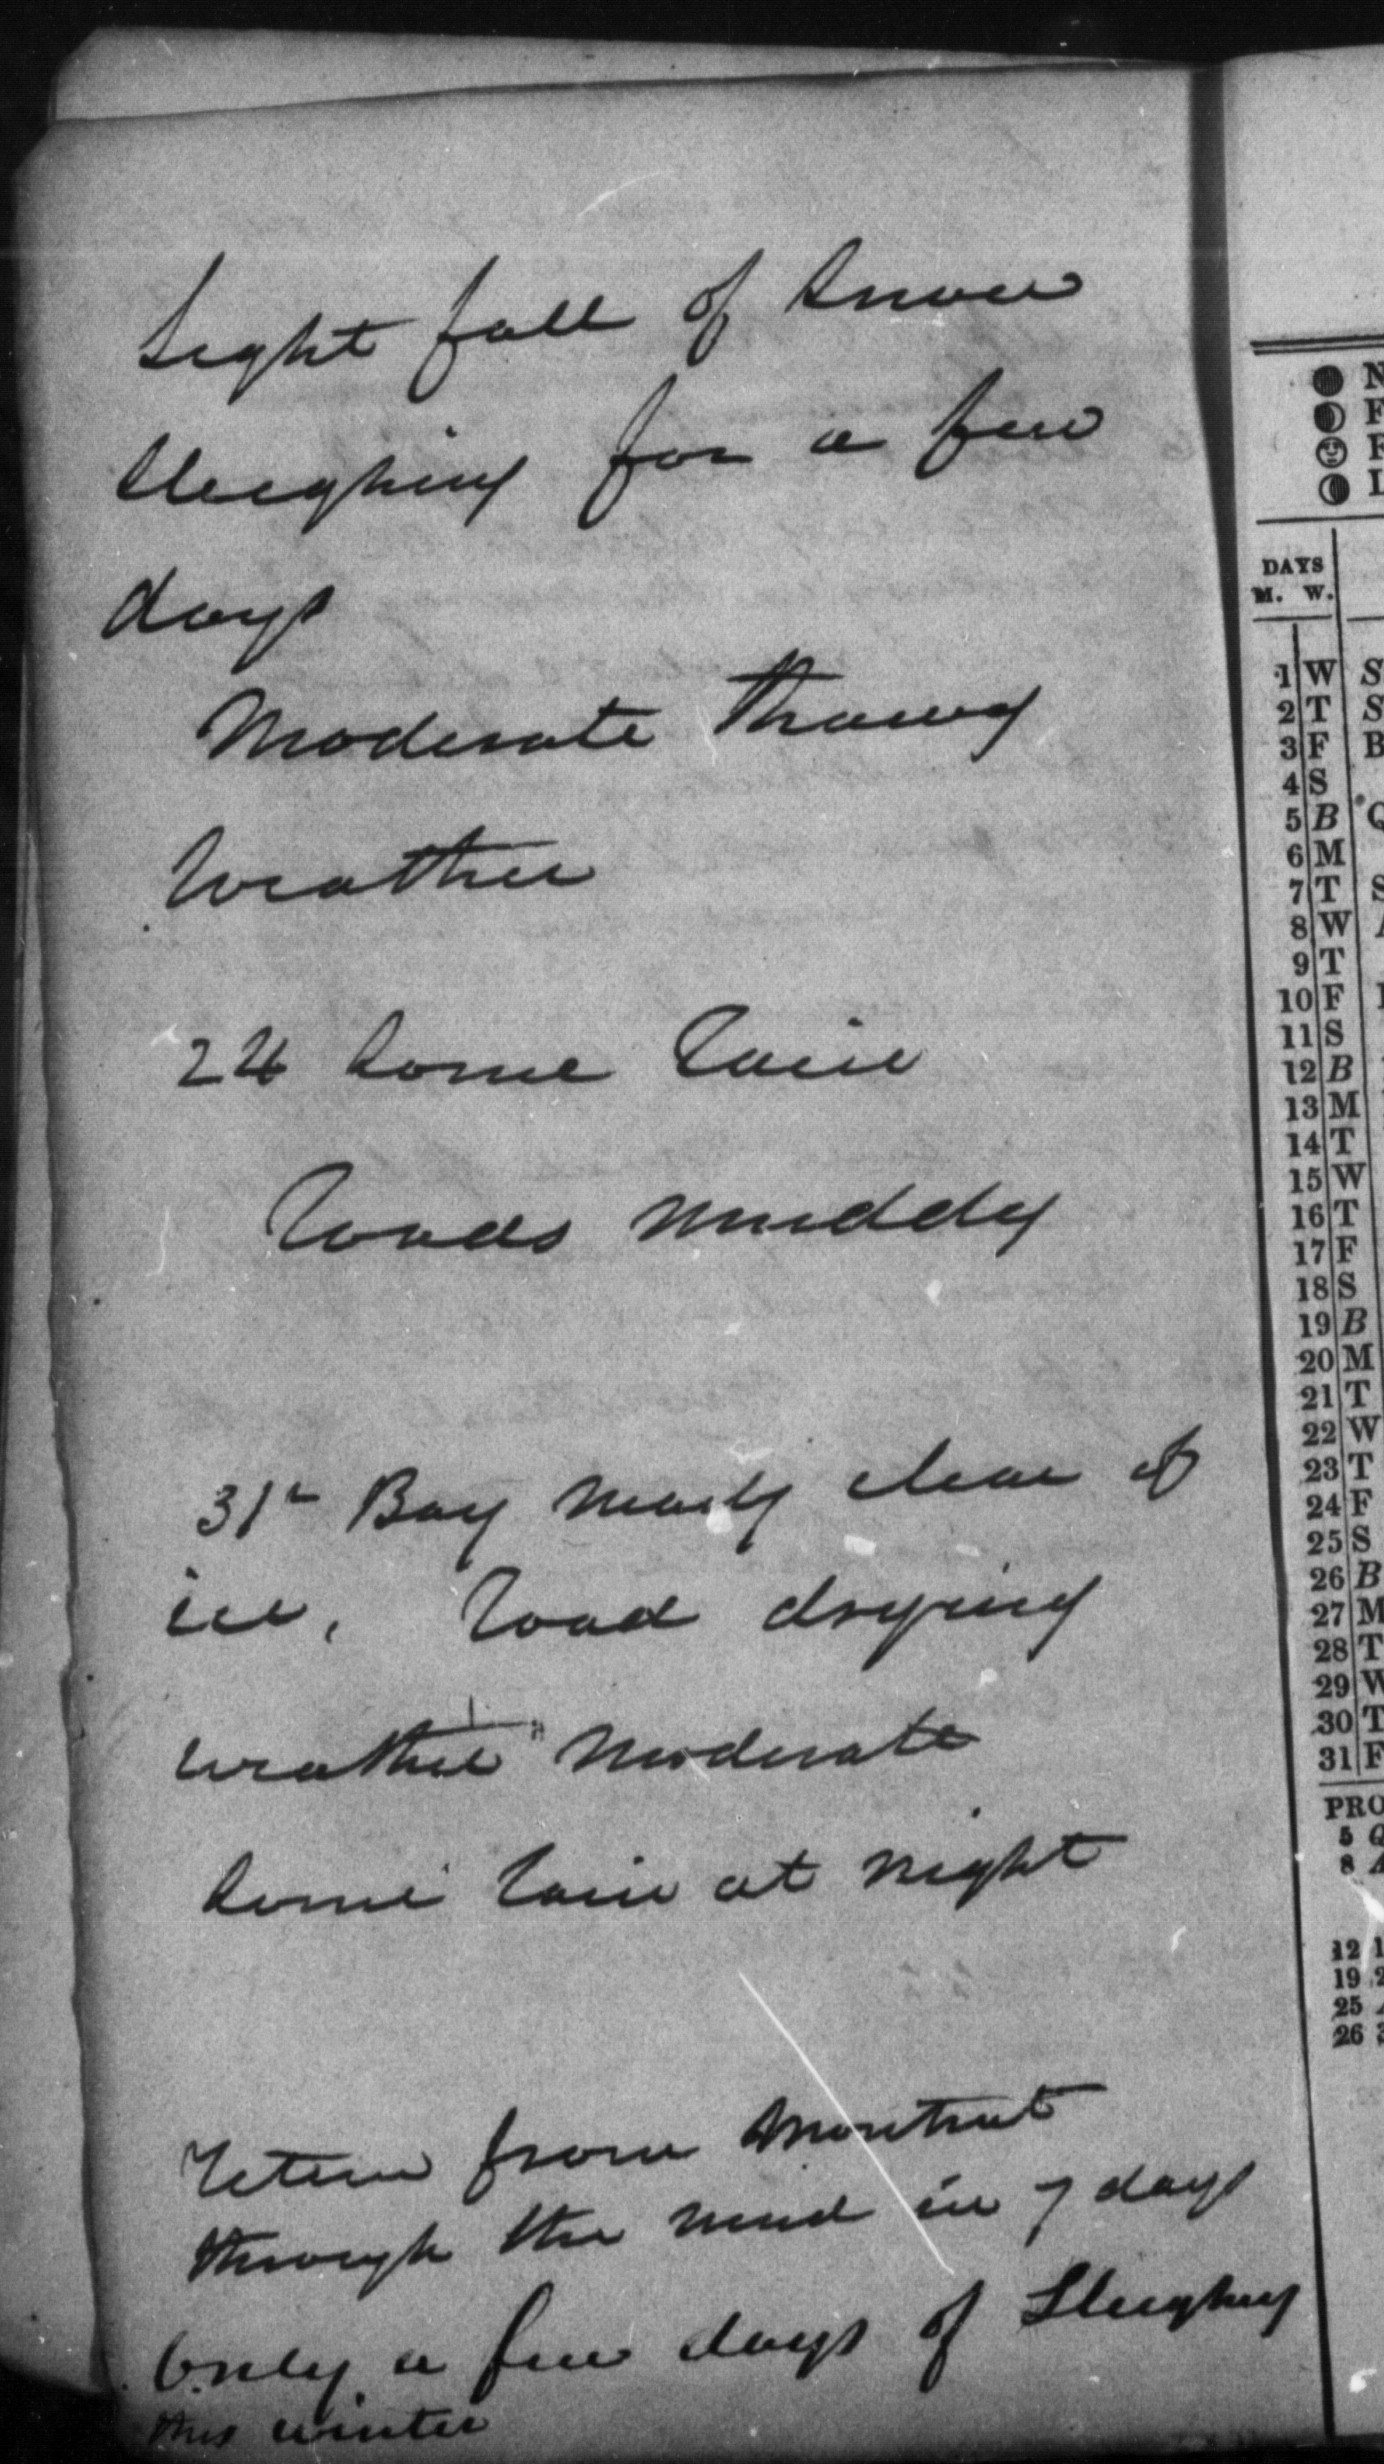 Light fall of Snow
Sleighing for a few
days
Moderate Thawy
Weather
24 Some Rain
Roads muddy
31st Bay nearly clear of
ice, Road drying
weather moderate
Some Rain at night
Return from Montreal
through the mud in 7 days
Only a few days of Sleighing
this winter
N
F
F
L
DAYS
M. W.
1 W S
2 T S
3 F B
4 S
5 B Q
6 M
7 T S
8 W A
9 T
10 F
11 S
12 B
13 M
14 T
15 W
16 T
17 F
18 S
19 B
20 M
21 T
22 W
23 T
24 F
25 S
26 B
27 M
28 T
29 W
30 T
31 F
PRO
5 Q
8 A
12 1
19 2
25
26 3